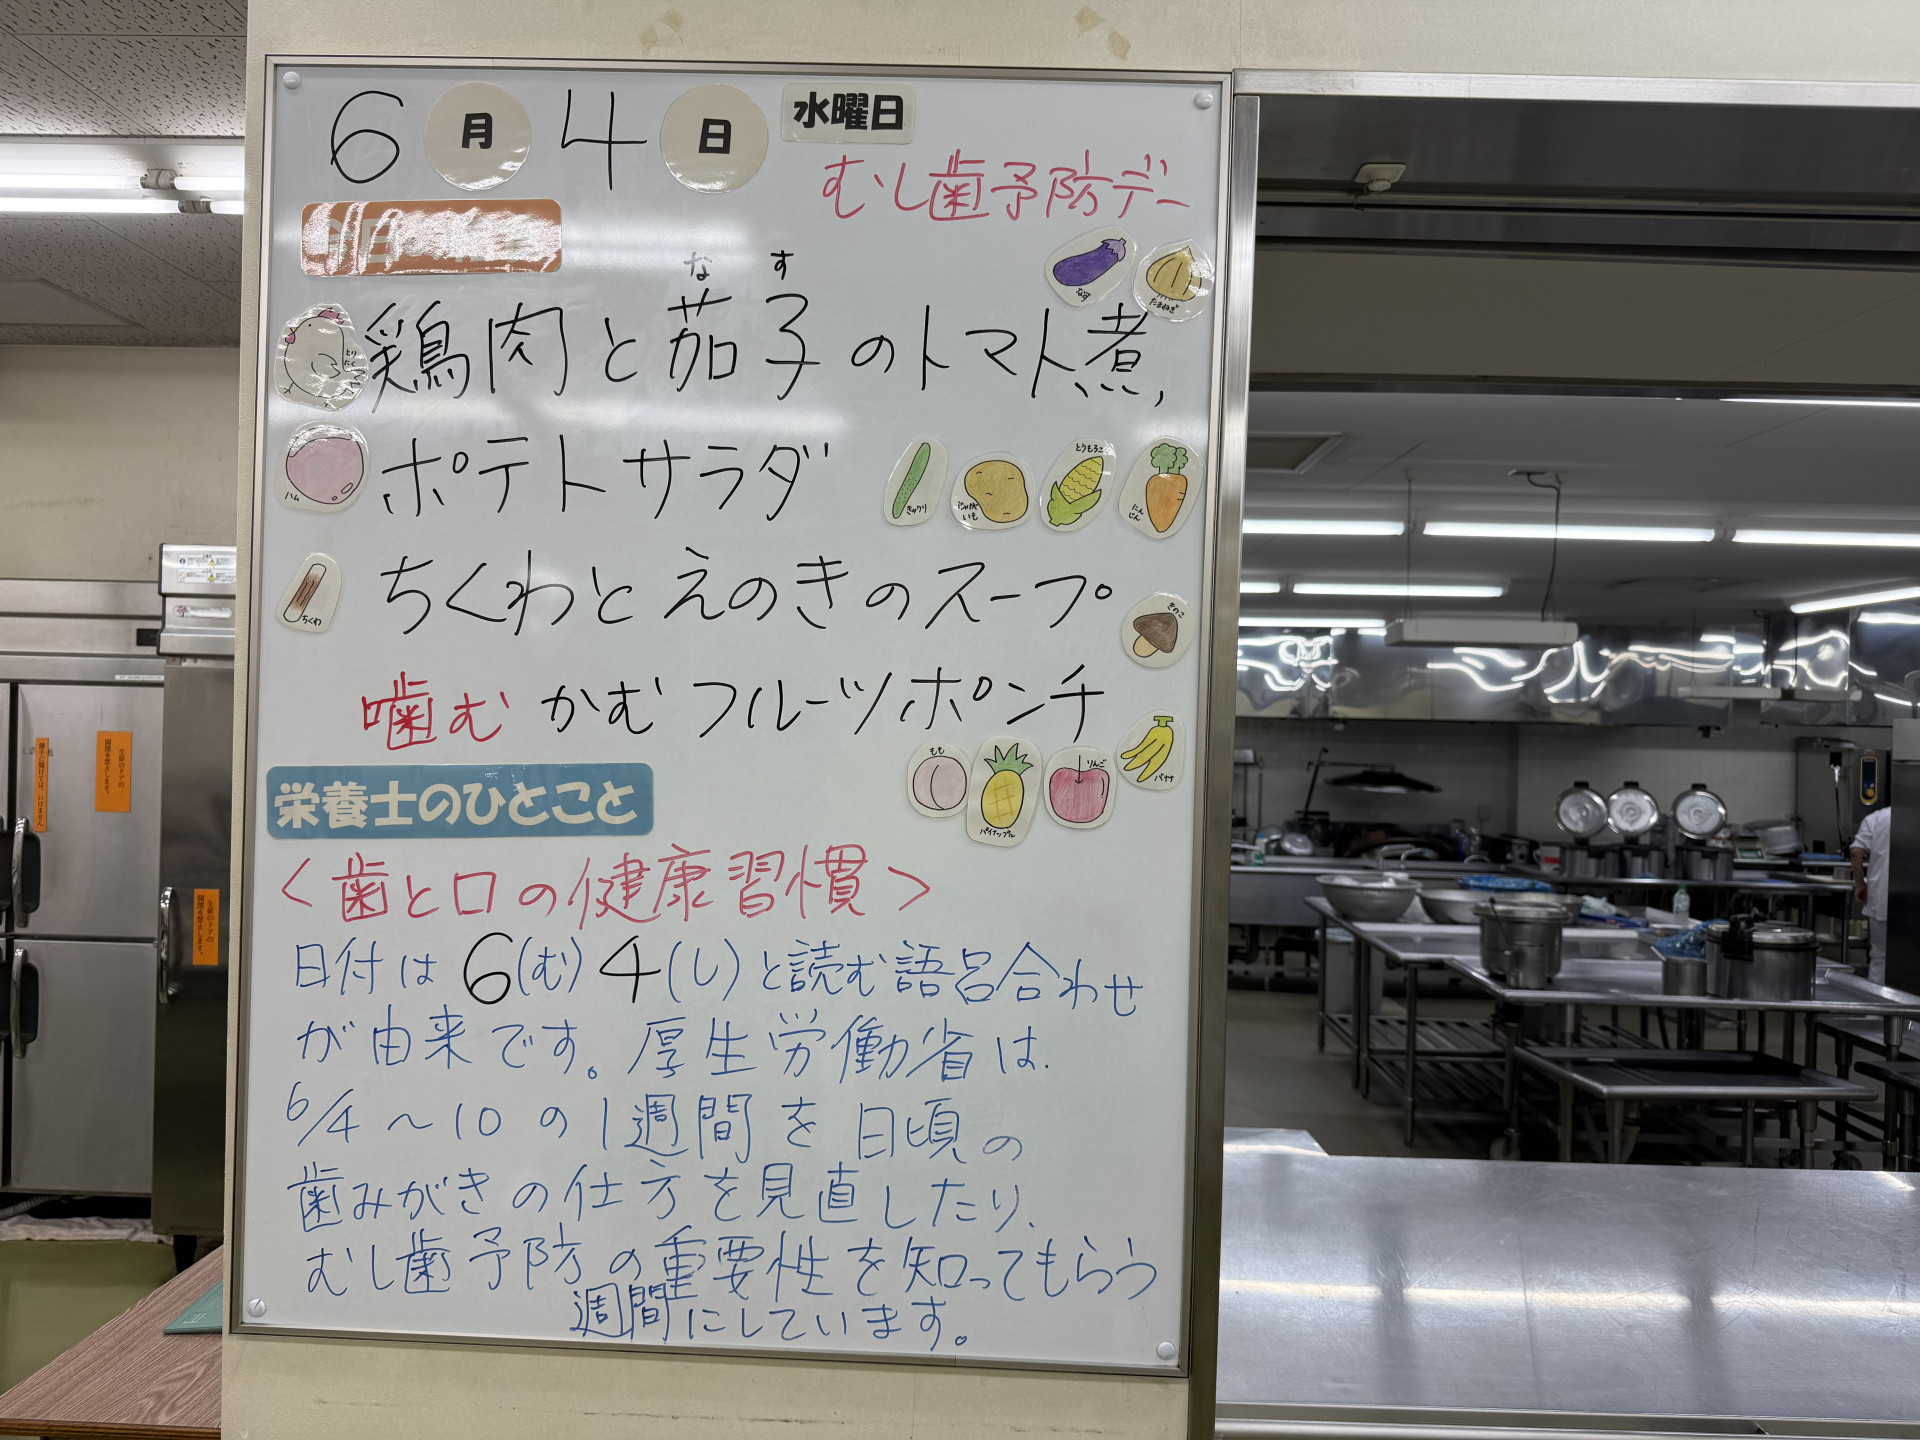 6月4日 水曜日
むし歯予防デー
なす
たまねぎ
なす
鶏肉と茄子のトマト煮,
とりにく
ポテトサラダ
ハム
きゅうり
じゃがいも
とうもろこし
にんじん
ちくわとえのきのスープ
ちくわ
きのこ
噛むかむフルーツポンチ
もも
パイナップル
りんご
バナナ
栄養士のひとこと
<歯と口の健康習慣>
日付は6(む)4(し)と読む語呂合わせ
が由来です。厚生労働省は、
6/4～10の1週間を日頃の
歯みがきの仕方を見直したり、
むし歯予防の重要性を知ってもらう
週間にしています。